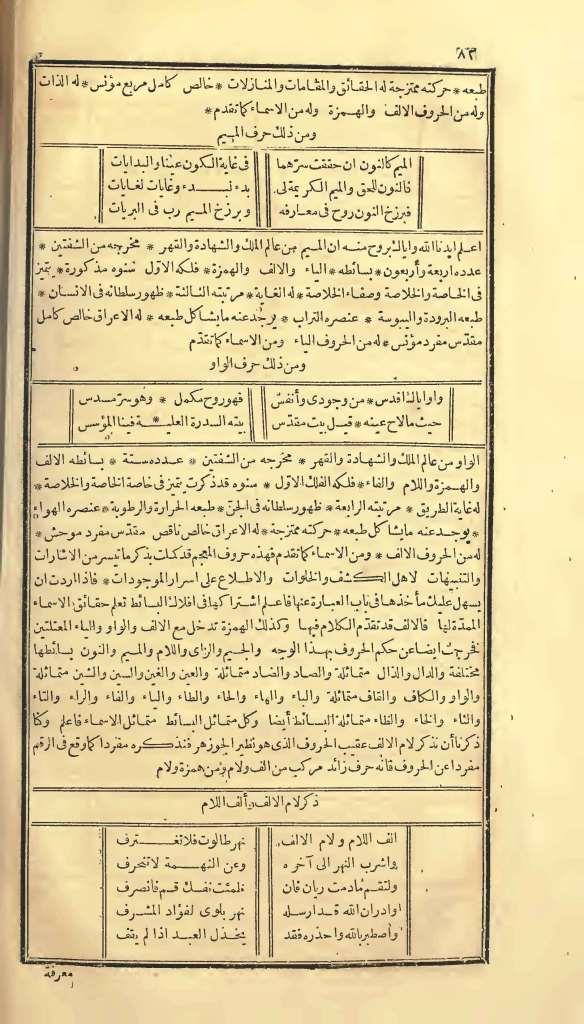 ٨٣
طبعه * حركته ممتزجة له الحقائق والمقامات والمنازلات * خالص كامل مربع مؤنس * له الذات
وله من الحروف الالف والهمزة وله من الاسماء كما تقدم *
ومن ذلك حرف الميم
الميم كالنون ان حققت سرهما في غاية الكون عينا والبدايات
فالنون للحق والميم الكريمة لى بدء لبدء وغايات لغايات
فبرزخ النون روح فى معارفه وبرزخ الميم رب فى البريات
اعلم ايدنا الله واياك بروح منه ان الميم من عالم الملك والشهادة والقهر * مخرجه من الشفتين *
عدده اربعة وأربعون * بسائطه * الياء والالف والهمزة * فلكه الاول سنوه مذكورة * يتميز
فى الخاصة والخلاصة وصفاء الخلاصة * له الغاية * مرتبته الثالثة * ظهور سلطانه فى الانسان *
طبعه البرودة واليبوسة * عنصره التراب * يوجد عنه ما يشاكل طبعه * له الاعراق خالص كامل
مقدس مفرد مؤنس * له من الحروف الياء ومن الاسماء كما تقدم
ومن ذلك حرف الواو
واو اياك أقدس * من وجودى وأنفس فهو روح مكمل * وهو سر مسدس
حيث ما لاح عينه * قيل بيت مقدس بيته السدرة العلية * فينا المؤسس
الواو من عالم الملك والشهادة والقهر * مخرجه من الشفتين * عدده ستة * بسائطه الالف
والهمزة واللام والفاء * فلكه الفلك الاول * سنوه قد ذكرت يتميز فى خاصة الخاصة والخلاصة *
له غاية الطريق * مرتبته الرابعة * ظهور سلطانه فى الجن * طبعه الحرارة والرطوبة * عنصره الهواء
* يوجد عنه ما يشاكل طبعه * حركته ممتزجة * له الاعراق خالص ناقص مقدس مفرد موحش *
له من الحروف الالف * ومن الاسماء كما تقدم فهذه حروف المعجم قد كملت بذكر ما تيسر من الاشارات
والتنبيهات لاهل الكشف والخلوات والاطلاع على اسرار الموجودات * فاذا اردت ان
يسهل عليك مأخذها فى باب العبارة عنها فاعلم اشتراكها فى افلاك البسائط تعلم حقائق الاسماء
الممدة لها فالالف قد تقدم الكلام فيها وكذلك الهمزة تدخل مع الالف والواو والياء المعتلتين
فخرجت ايضا عن حكم الحروف بهذا الوجه والجيم والزاى واللام والميم والنون بسائطها
مختلفة والدال والذال متماثلة والصاد والضاد متماثلة والعين والغين والسين والشين متماثلة
والواو والكاف والقاف متماثلة والباء والهاء والحاء والطاء والياء والفاء والراء والتاء
والثاء والخاء والظاء متماثلة البسائط أيضا وكل متماثل البسائط متماثل الاسماء فاعلم وكنا
ذكرنا أن نذكر لام الالف عقيب الحروف الذى هو نظير الجوزهر فنذكره مفردا كما وقع فى الرقم
مفردا عن الحروف فانه حرف زائد مركب من الف ولام ومن همزة ولام
ذكر لام الالف وألف اللام
الف اللام ولام الالف نهر طالوت فلا تغترف
واشرب النهر الى آخره وعن النهمة لا تنحرف
ولتقم ما دمت ريان فان ظمئت نفسك قم فانصرف
اوادر ان الله قد ارسله نهر بلوى لفؤاد المشرف
واصطبر بالله واحذره فقد يخذل العبد اذا لم يقف
معرفة